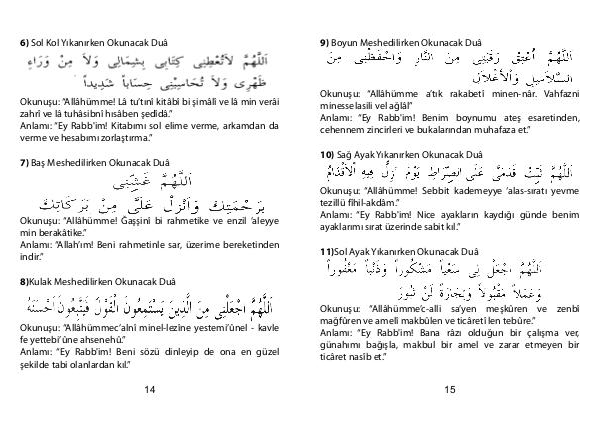 6) Sol Kol Yıkanırken Okunacak Duâ
اَللّٰهُمَّ لَاتُعْطِنِى كِتَابِى بِشِمَالِى وَلاَ مِنْ وَرَاءِ
ظَهْرِى وَلاَ تُحَاسِبْنِى حِسَاباً شَدِيداً
Okunuşu: “Allâhümme! Lâ tu’tınî kitâbî bi şimâlî ve lâ min verâi
zahrî ve lâ tuhâsibnî hısâben şedîdâ.”
Anlamı: “Ey Rabb'im! Kitabımı sol elime verme, arkamdan da
verme ve hesabımı zorlaştırma.”
7) Baş Meshedilirken Okunacak Duâ
اَللّٰهُمَّ غَشِّنِى
بِرَحْمَتِكَ وَاَنْزِلْ عَلَىَّ مِنْ بَرَكَاتِكَ
Okunuşu: “Allâhümme! Ğaşşinî bi rahmetike ve enzil ‘aleyye
min berakâtike.”
Anlamı: “Allah’ım! Beni rahmetinle sar, üzerime bereketinden
indir.”
8)Kulak Meshedilirken Okunacak Duâ
اَللّٰهُمَّ اجْعَلْنِى مِنَ الَّذِينَ يَسْتَمِعُونَ الْقَوْلَ فَيَتَّبِعُونَ اَحْسَنَهُ
Okunuşu: “Allâhümmec’alnî minel-lezîne yestemi’ûnel - kavle
fe yettebi’ûne ahsenehû.”
Anlamı: “Ey Rabb'im! Beni sözü dinleyip de ona en güzel
şekilde tabi olanlardan kıl.”
14
9) Boyun Meshedilirken Okunacak Duâ
اَللّٰهُمَّ اَعْتِقْ رَقَبَتِى مِنَ النَّارِ وَاحْفَظْنِى مِنَ
السَّلَاسِلِ وَالْاَغْلَالِ
Okunuşu: “Allâhümme a’tık rakabetî minen-nâr. Vahfaznî
minesselasili vel ağlâl”
Anlamı: “Ey Rabb'im! Benim boynumu ateş esaretinden,
cehennem zincirleri ve bukalarından muhafaza et.”
10) Sağ Ayak Yıkanırken Okunacak Duâ
اَللّٰهُمَّ ثَبِّتْ قَدَمَىَّ عَلَى الصِّرَاطِ يَوْمَ تَزِلُّ فِيهِ الْاَقْدَامُ
Okunuşu: “Allâhümme! Sebbit kademeyye ‘alas-sıratı yevme
tezillü fîhil-akdâm.”
Anlamı: “Ey Rabb'im! Nice ayakların kaydığı günde benim
ayaklarımı sırat üzerinde sabit kıl.”
11)Sol Ayak Yıkanırken Okunacak Duâ
اَللّٰهُمَّ اجْعَلْ لِى سَعْياً مَشْكُوراً وَذَنْباً مَغْفُوراً
وَعَمَلاً مَقْبُولاً وَتِجَارَةً لَنْ تَبُورَ
Okunuşu: “Allâhümme’c-alli sa’yen meşkûren ve zenbî
mağfûren ve amelî makbûlen ve ticâreti len tebûre.”
Anlamı: “Ey Rabb'im! Bana râzı olduğun bir çalışma ver,
günahımı bağışla, makbul bir amel ve zarar etmeyen bir
ticâret nasîb et.”
15